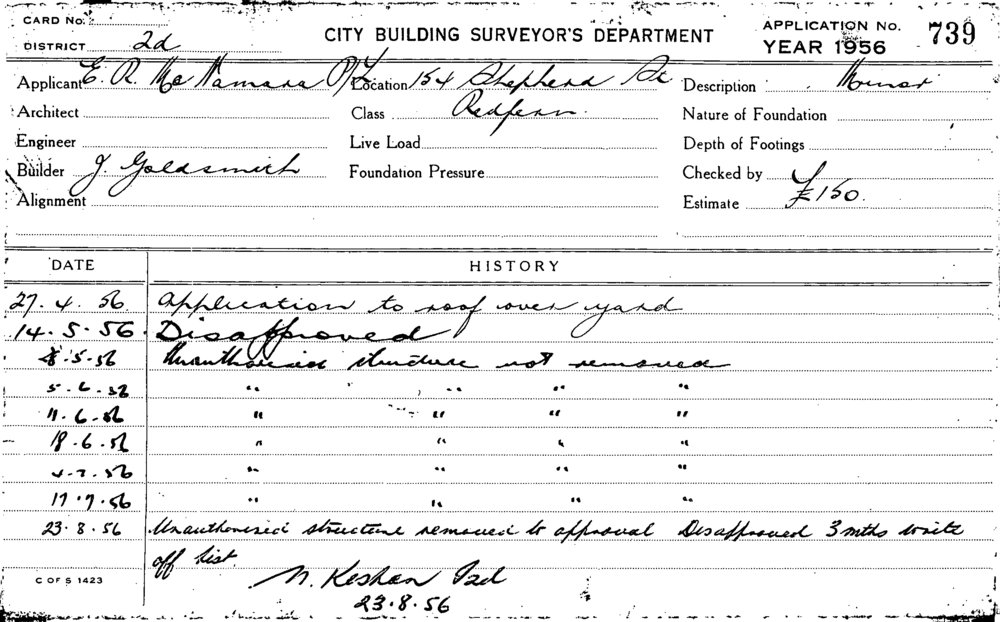 CARD No.
DISTRICT 2d
CITY BUILDING SURVEYOR'S DEPARTMENT
APPLICATION No. 739
YEAR 1956
Applicant E. R. McNamara P/L Location 154 Shepherd St Description Minor
Architect Class Redfern Nature of Foundation
Engineer Live Load Depth of Footings
Builder J. Goldsmith Foundation Pressure Checked by
Alignment Estimate £150.
DATE HISTORY
27.4.56. Application to roof over yard
14.5.56. Disapproved
8.5.56 Unauthorised structure not removed
5.6.56 " " " "
11.6.56 " " " "
18.6.56 " " " "
4.7.56 " " " "
17.7.56 " " " "
23.8.56 Unauthorised structure removed to approval Disapproved 3 mths write
off list.
N. Keshan
23.8.56
C OF S 1423